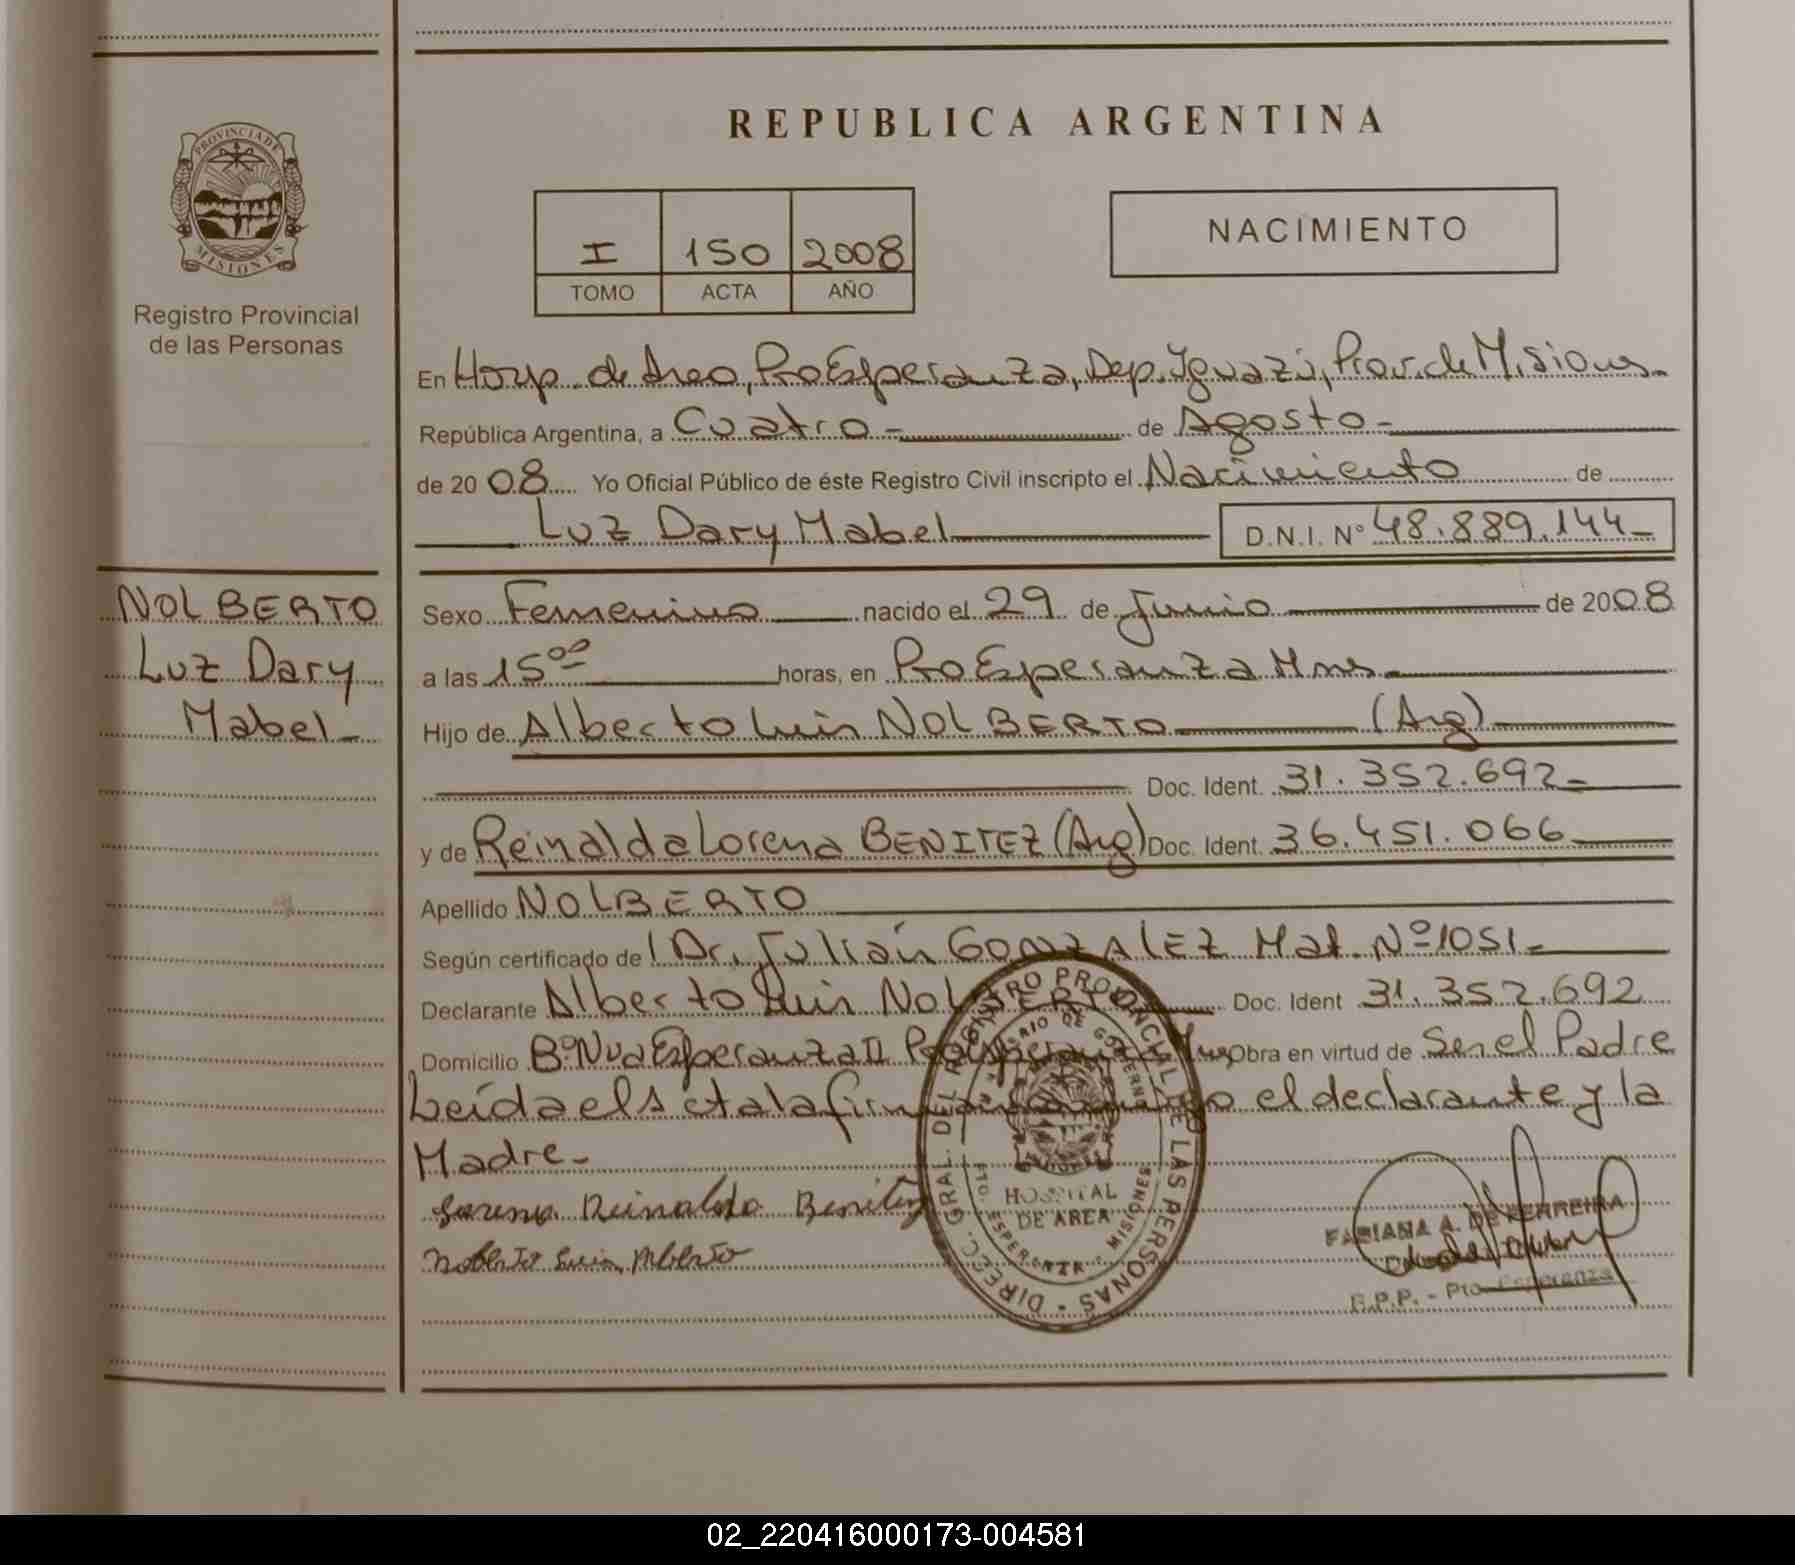 REPUBLICA ARGENTINA
PROVINCIA DE MISIONES
Registro Provincial
de las Personas
I 150 2008
TOMO ACTA AÑO
NACIMIENTO
En Hosp. de Area, Pto Esperanza, Dep. Iguazú, Prov. de Misiones.
República Argentina, a Cuatro - de Agosto -
de 2008 Yo Oficial Público de éste Registro Civil inscripto el Nacimiento de
Luz Dary Mabel D.N.I. Nº 48.889.144-
NOLBERTO
Luz Dary
Mabel-
Sexo Femenino nacido el 29 de Junio de 2008
a las 15ºº horas, en Pto Esperanza Mnes.
Hijo de Alberto Luis NOLBERTO (Arg)
Doc. Ident. 31.352.692-
y de Reinalda Lorena BENITEZ (Arg) Doc. Ident. 36.451.066
Apellido NOLBERTO
Según certificado de l Dr. Julián GONZALEZ Mat. Nº 1051-
Declarante Alberto Luis NOLBERTO Doc. Ident 31.352.692
Domicilio Bº Nva Esperanza II Pto Esperanza Obra en virtud de Ser el Padre
Leída el Acta la firman el declarante y la
Madre-
Lorena Reinalda Benitez
Nolberto Luis Alberto
DIREC. GRAL. DEL REGISTRO PROVINCIAL DE LAS PERSONAS
MINISTERIO DE GOBIERNO
HOSPITAL
DE AREA
PTO. ESPERANZA - MISIONES
FABIANA A. DE FERREIRA
R.P.P. - Pto. Esperanza
02_220416000173-004581